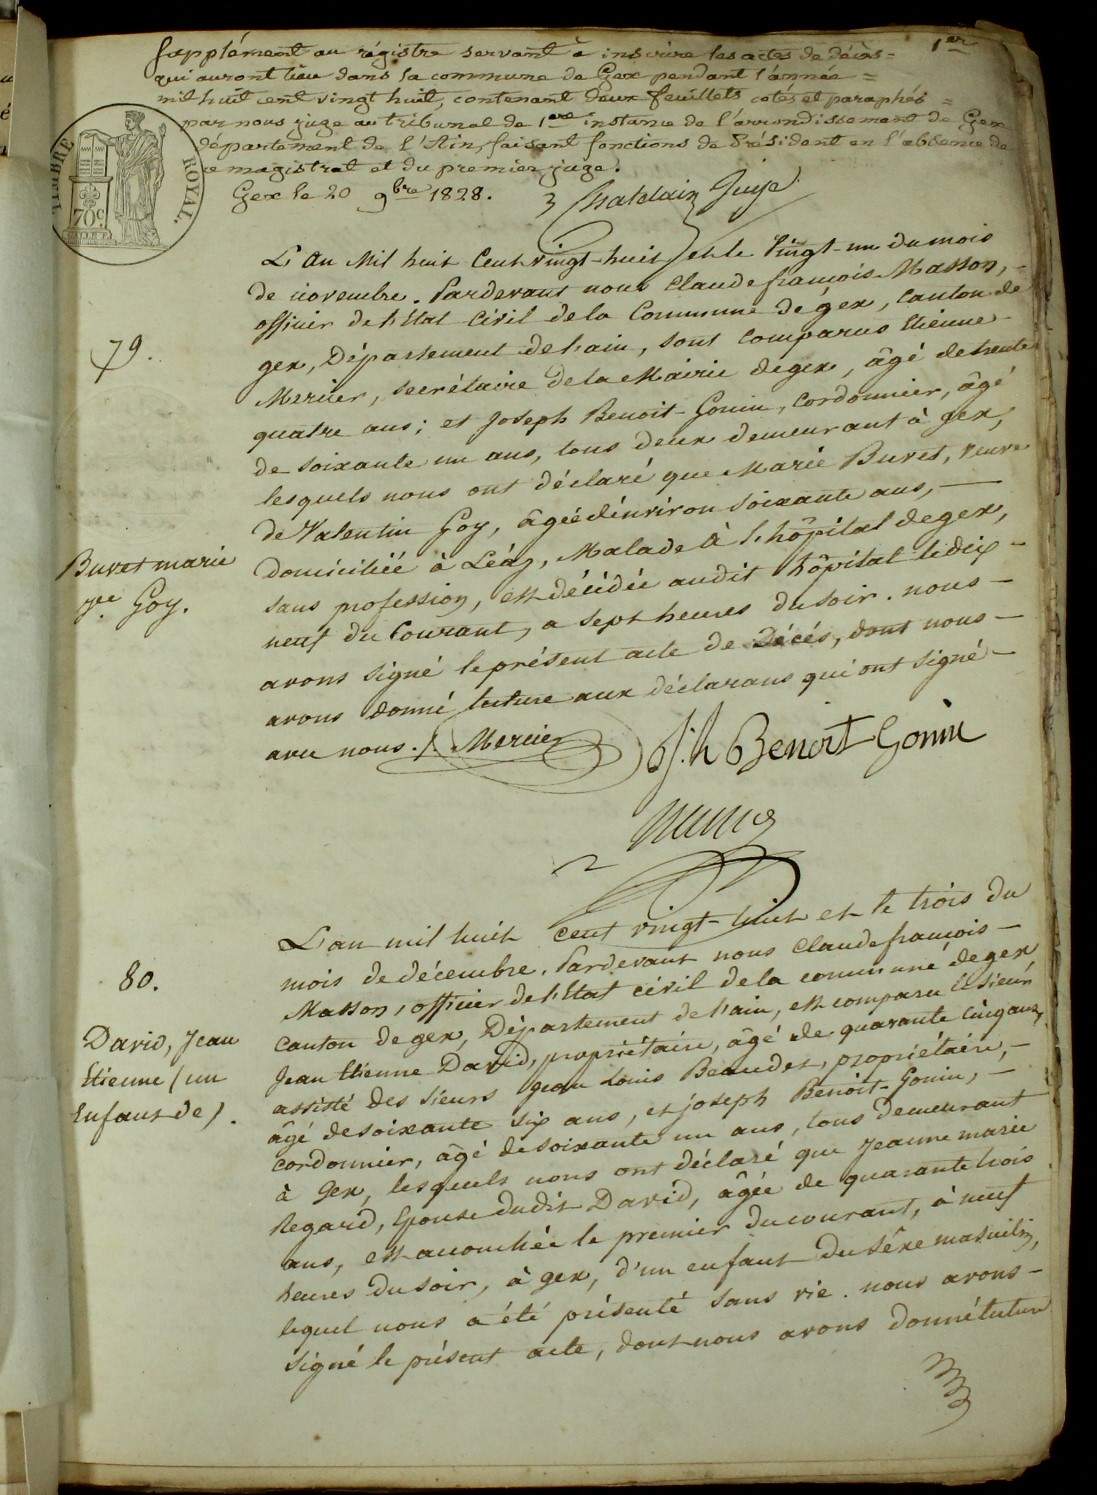 1er
Supplément au régistre servant à inscrire les actes de décès =
qui auront lieu dans la commune de Gex pendant l'année =
mil huit cent vingt huit, contenant deux feuillets cotés et paraphés =
par nous juge au tribunal de 1ere instance de l'arrondissement de Gex
département de l'Ain, faisant fonctions de Président en l'absence de
ce magistrat et du premier juge.
Gex le 20 9bre 1828.
Chatelain Juge
TIMBRE ROYAL.
70c.
L'an Mil huit Cent vingt-huit et le Vingt-un du mois
de novembre. Pardevant nous Claude françois Masson, -
officier de l'Etat Civil de la Commune de gex, Canton de
79.
gex, Département de l'ain, sont Comparus Etienne -
Mercier, secrétaire de la Mairie de gex, âgé de trente
quatre ans; et Joseph Benoit-Gonin, Cordonnier, âgé
de soixante un ans, tous deux demeurant à gex,
lesquels nous ont déclaré que Marie Buvet, veuve
de Valentin Goy, âgée d'environ soixante ans, —
Buvet marie
ve. Goy.
domiciliée à Léaz, Malade à l'hôpital de gex,
sans profession, est décédée audit hôpital le dix -
neuf du Courant, a sept heures du soir. nous -
avons signé le présent acte de Décés, dont nous -
avons donné lecture aux déclarans qui ont signé -
avec nous. /. Mercier
Jh Benoit Gonin
L'an mil huit cent vingt-huit et le trois du
mois de décembre. Pardevant nous Claude françois -
80.
Masson, officier de l'Etat civil de la commune de gex
canton de gex, Département de l'ain, est comparu le sieur
David, Jean
Etienne (un
Enfant de).
Jean Etienne David, propriétaire, âgé de quarante cinq ans,
assisté des sieurs Jean Louis Beaudet, propriétaire, -
âgé de soixante six ans, et joseph Benoit-Gonin, -
cordonnier, âgé de soixante un ans, tous demeurant
à Gex, lesquels nous ont déclaré que Jeanne marie
Regard, Epouse dudit David, âgée de quarante trois
ans, est accouchée le premier du courant, à neuf
heures du soir, à gex, d'un enfant du sêxe masculin,
lequel nous a été présenté sans vie. nous avons -
signé le présent acte, dont nous avons donné lecture